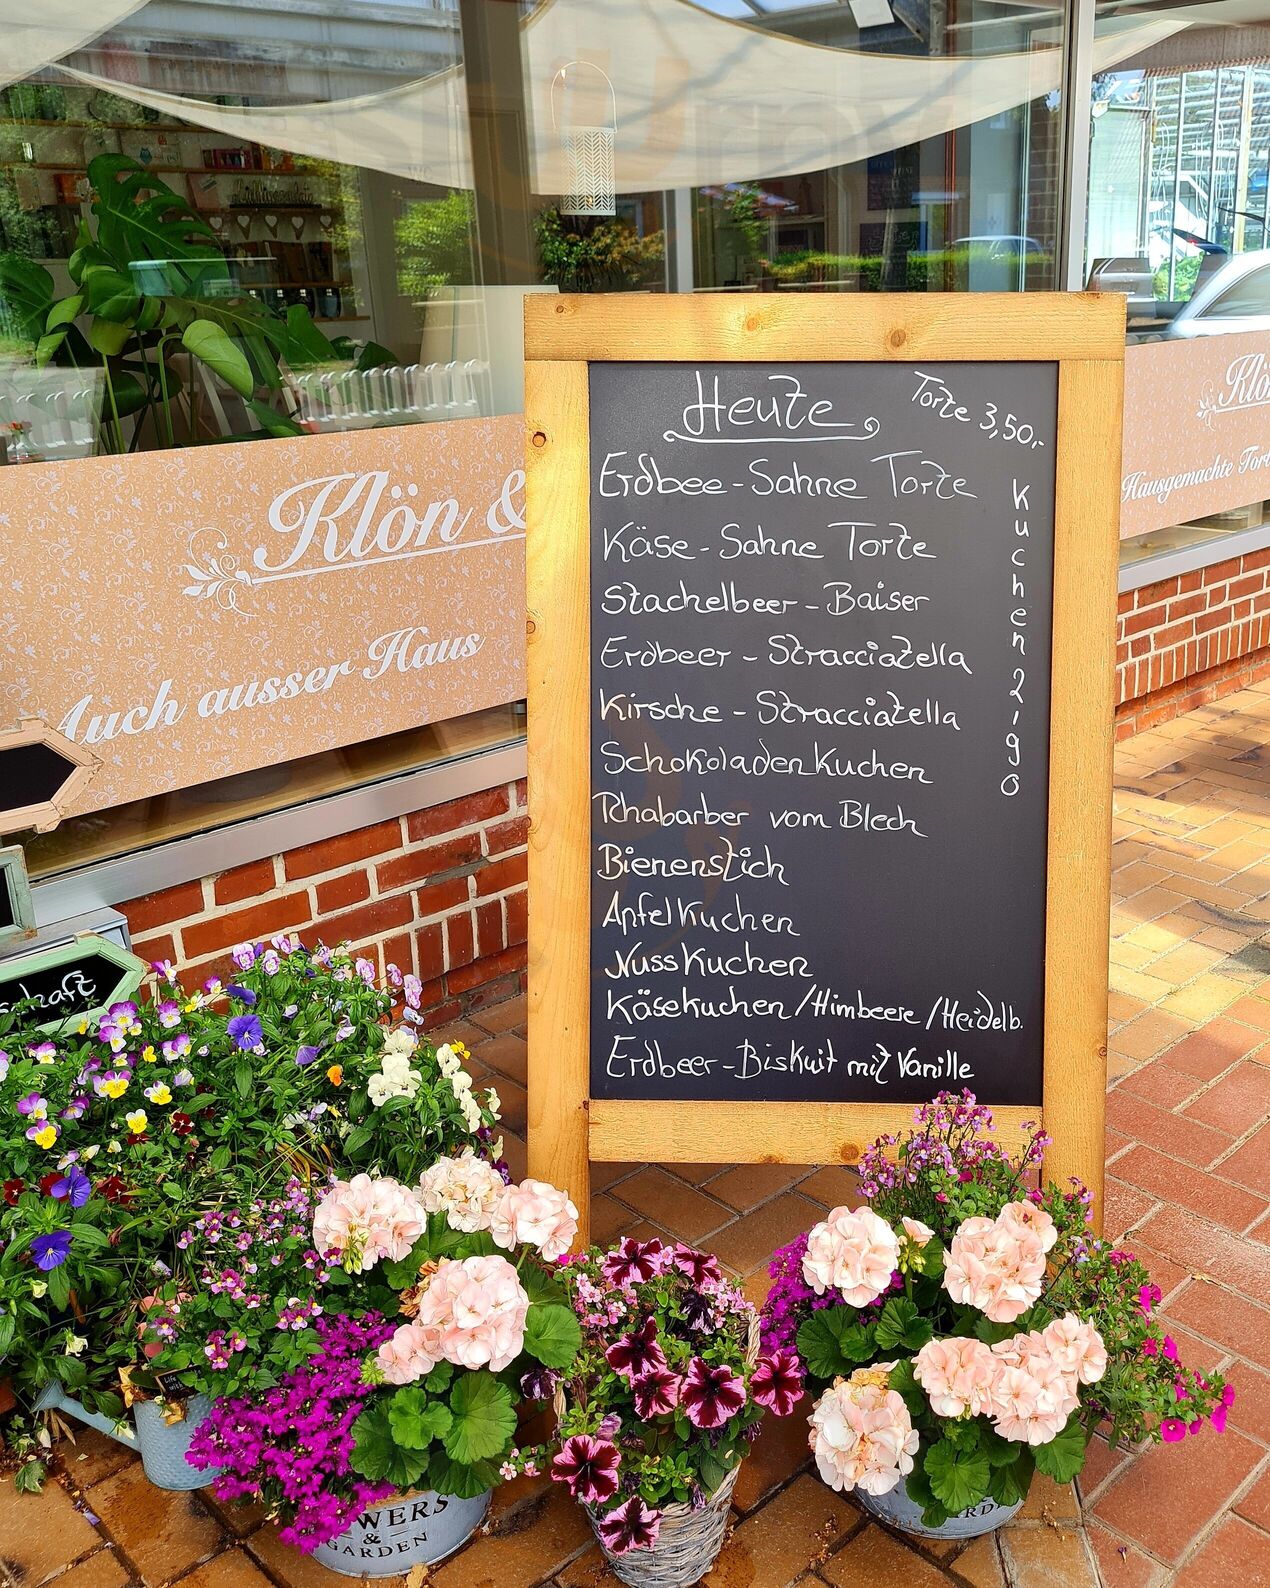 Heute
Torte 3,50,-
Erdbee-Sahne Torte
Käse-Sahne Torte
Stachelbeer-Baiser
Erdbeer-Stracciatella
Kirsche-Stracciatella
Schokoladenkuchen
Rhabarber vom Blech
Bienenstich
Apfelkuchen
Nusskuchen
Käsekuchen/Himbeere/Heidelb.
Erdbeer-Biskuit mit Vanille
Kuchen 2,90
Klön &
Auch ausser Haus
Klö
Hausgemachte Tort
schaft
WERS
&
GARDEN